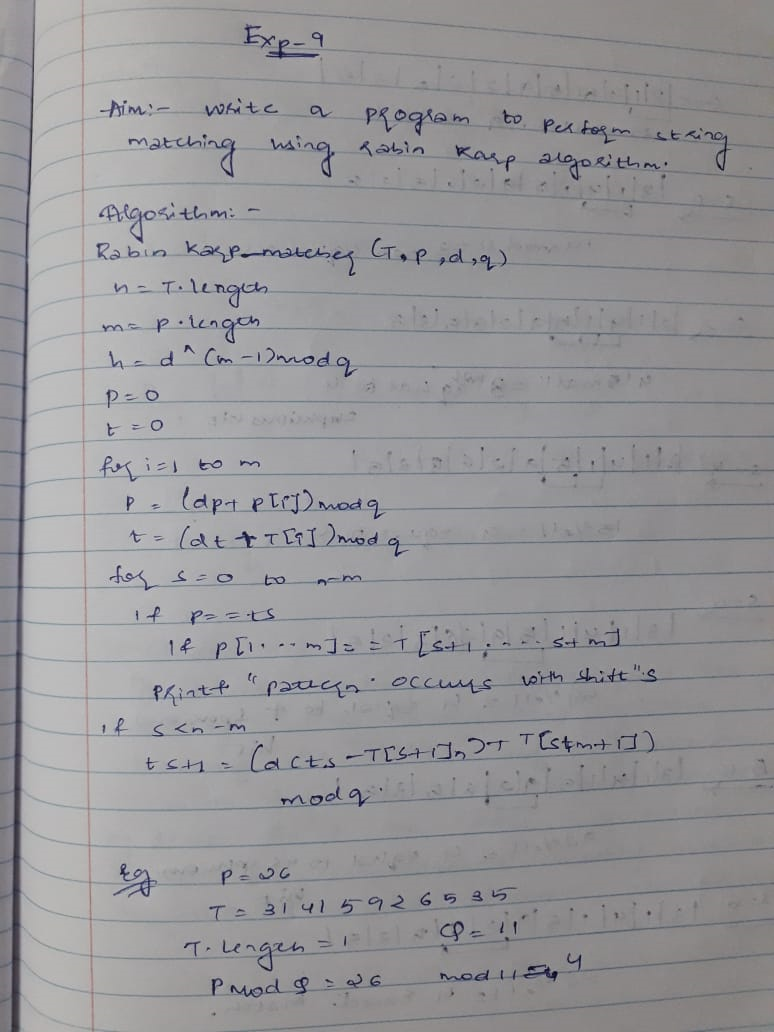 Exp-9
Aim:- write a program to perform string
matching using Rabin Karp algorithm.
Algorithm:-
Rabin Karp-matcher (T, P, d, q)
n = T.length
m = p.length
h = d^(m-1)mod q
p = 0
t = 0
for i=1 to m
p = (dp+ p[i])mod q
t = (dt + T[i])mod q
for s=0 to n-m
if p==ts
if p[1...m]== T[s+1.....s+m]
Printf "pattern occurs with shift"s
if s<n-m
ts+1 = (d(ts-T[s+1]h)+T[s+m+1])
mod q.
Eg P = 26
T = 31415926535
T.length = 1 Q = 11
P mod Q = 26 mod 11 = 4